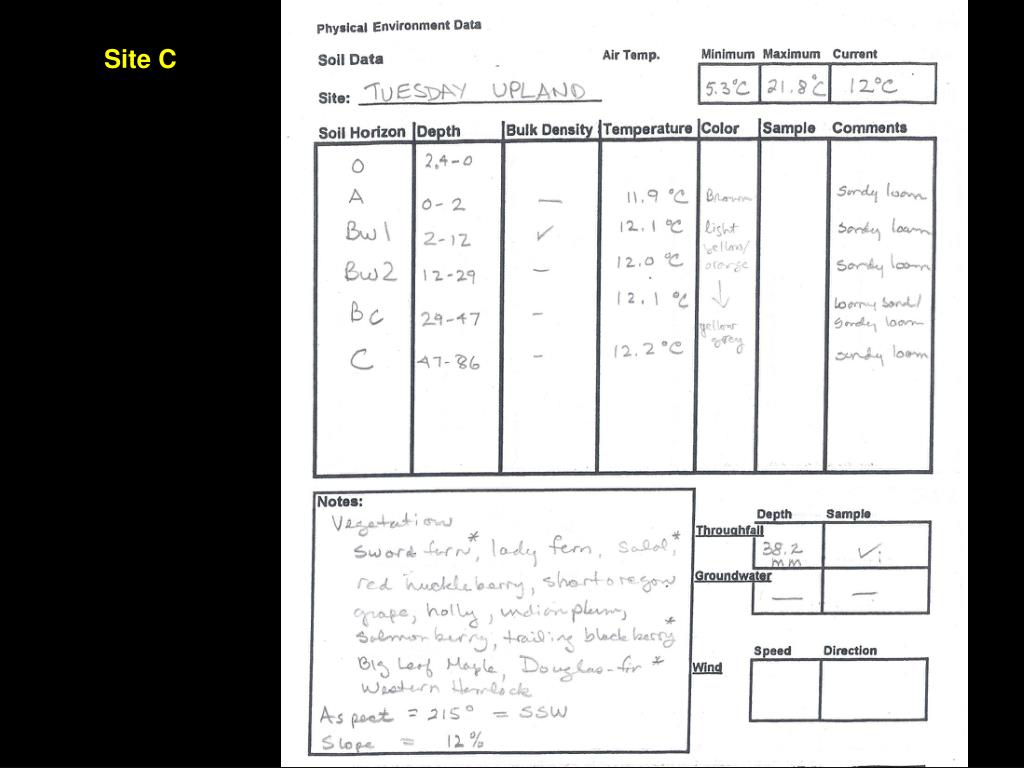 Site C
Physical Environment Data
Soil Data
Air Temp.
Minimum Maximum Current
Site: TUESDAY UPLAND
5.3°C 21.8°C 12°C
Soil Horizon Depth Bulk Density Temperature Color Sample Comments
O 2.4-0
A 0-2 — 11.9 °C Brown Sandy loam
Bw1 2-12 ✓ 12.1 °C light Sandy loam
yellow/
Bw2 12-29 — 12.0 °C orange Sandy loam
BC 29-47 - 12.1 °C ↓ loamy sand/
yellow Sandy loam
grey
C 47-86 - 12.2 °C sandy loam
Notes:
Vegetation
Sword furn*, lady fern, Salal*,
red huckleberry, short oregon
grape, holly, indian plum,
Salmon berry, trailing blackberry*
Big Leaf Maple, Douglas-fir *
Western Hemlock
Aspect = 215° = SSW
Slope = 12%
Depth Sample
Throughfall 38.2 ✓
mm
Groundwater — —
Speed Direction
Wind